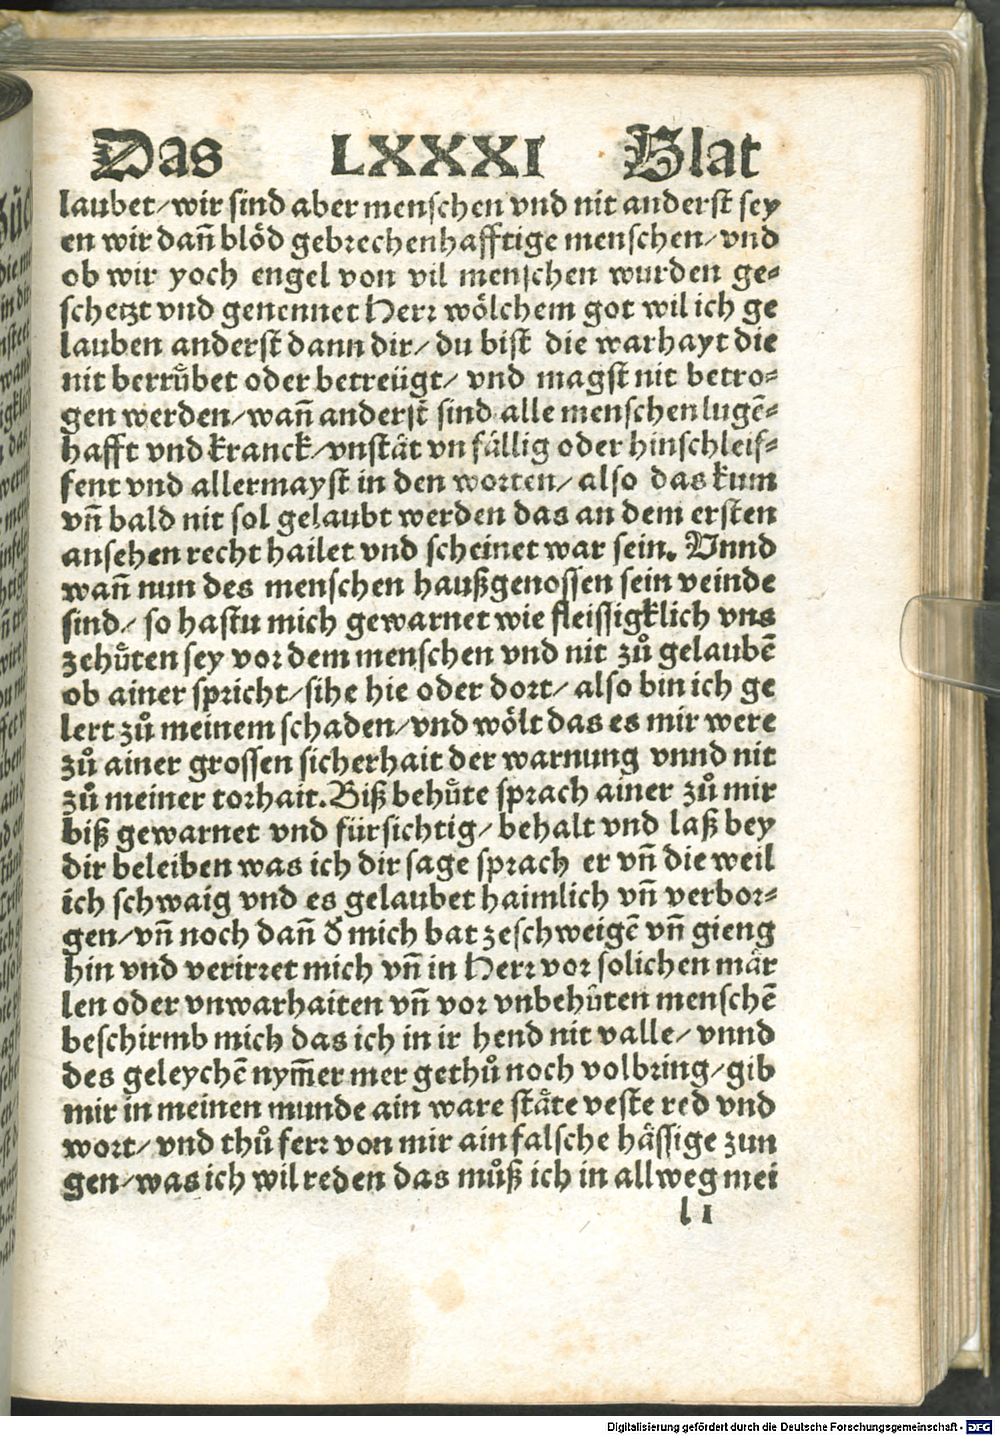 Das LXXXI Blat
laubet/wir sind aber menschen vnd nit anderst sey
en wir dañ blöd gebrechenhafftige menschen/vnd
ob wir yoch engel von vil menschen wurden ge-
schetzt vnd genennet Herr wölchem got wil ich ge
lauben anderst dann dir/ du bist die warhayt die
nit berrůbet oder betreügt/ vnd magst nit betro-
gen werden/wañ anderst sind alle menschen lugē-
hafft vnd kranck/vnstät vn fällig oder hinschleif-
fent vnd allermayst in den worten/ also das kum
vñ bald nit sol gelaubt werden das an dem ersten
ansehen recht hailet vnd scheinet war sein. Vnnd
wañ nun des menschen haußgenossen sein veinde
sind/ so hastu mich gewarnet wie fleissigklich vns
zehůten sey vor dem menschen vnd nit zů gelaubē
ob ainer spricht/sihe hie oder dort/ also bin ich ge
lert zů meinem schaden/vnd wölt das es mir were
zů ainer grossen sicherhait der warnung vnnd nit
zů meiner torhait. Biß behůte sprach ainer zů mir
biß gewarnet vnd fürsichtig/ behalt vnd laß bey
dir beleiben was ich dir sage sprach er vñ die weil
ich schwaig vnd es gelaubet haimlich vñ verbor-
gen/vñ noch dañ d̕ mich bat zeschweigē vñ gieng
hin vnd verirret mich vñ in Herr vor solichen mär
len oder vnwarhaiten vñ vor vnbehůten menschē
beschirmb mich das ich in ir hend nit valle/ vnnd
des geleychē nym̃er mer gethů noch volbring/gib
mir in meinen munde ain ware stäte veste red vnd
wort/ vnd thů ferr von mir ain falsche hässige zun
gen/was ich wil reden das můß ich in allweg mei
l 1
Digitalisierung gefördert durch die Deutsche Forschungsgemeinschaft - DFG